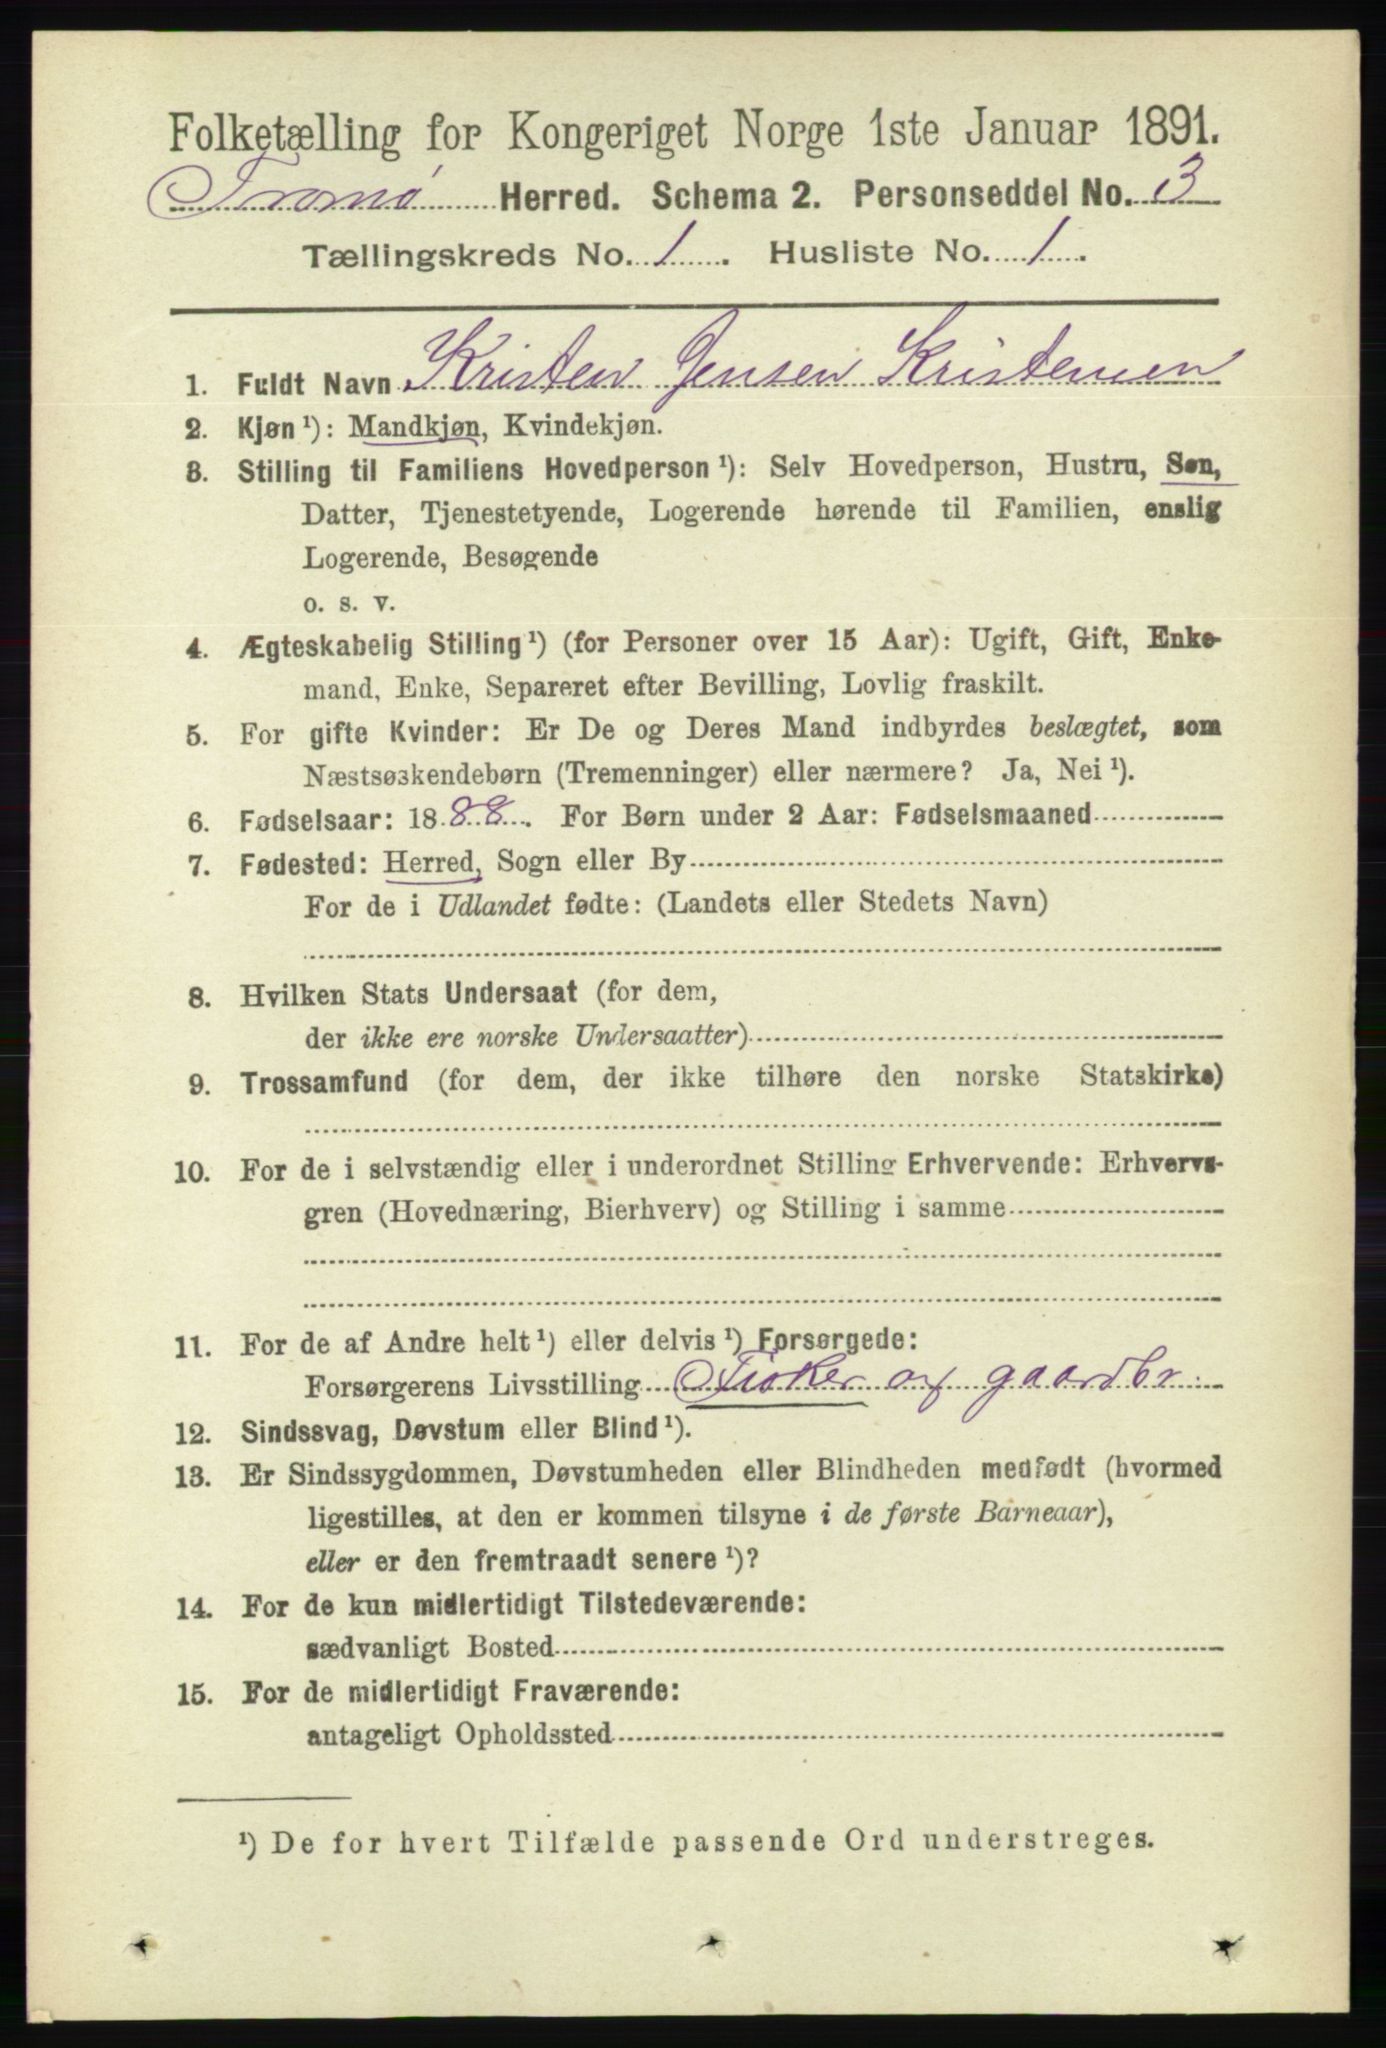 Folketælling for Kongeriget Norge 1ste Januar 1891.
Tromø Herred. Schema 2. Personseddel No. 3
Tællingskreds No. 1. Husliste No. 1.
1. Fuldt Navn Kristen Jensen Kristensen
2. Kjøn ¹): Mandkjøn, Kvindekjøn.
3. Stilling til Familiens Hovedperson ¹): Selv Hovedperson, Hustru, Søn,
Datter, Tjenestetyende, Logerende hørende til Familien, enslig
Logerende, Besøgende
o. s. v.
4. Ægteskabelig Stilling ¹) (for Personer over 15 Aar): Ugift, Gift, Enke-
mand, Enke, Separeret efter Bevilling, Lovlig fraskilt.
5. For gifte Kvinder: Er De og Deres Mand indbyrdes beslægtet, som
Næstsøskendebørn (Tremenninger) eller nærmere? Ja, Nei ¹).
6. Fødselsaar: 1888. For Børn under 2 Aar: Fødselsmaaned
7. Fødested: Herred, Sogn eller By
For de i Udlandet fødte: (Landets eller Stedets Navn)
8. Hvilken Stats Undersaat (for dem,
der ikke ere norske Undersaatter)
9. Trossamfund (for dem, der ikke tilhøre den norske Statskirke)
10. For de i selvstændig eller i underordnet Stilling Erhvervende: Erhvervs-
gren (Hovednæring, Bierhverv) og Stilling i samme
11. For de af Andre helt ¹) eller delvis ¹) Forsørgede:
Forsørgerens Livsstilling Fisker og gaardbr.
12. Sindssvag, Døvstum eller Blind ¹).
13. Er Sindssygdommen, Døvstumheden eller Blindheden medfødt (hvormed
ligestilles, at den er kommen tilsyne i de første Barneaar),
eller er den fremtraadt senere ¹)?
14. For de kun midlertidigt Tilstedeværende:
sædvanligt Bosted
15. For de midlertidigt Fraværende:
antageligt Opholdssted
¹) De for hvert Tilfælde passende Ord understreges.